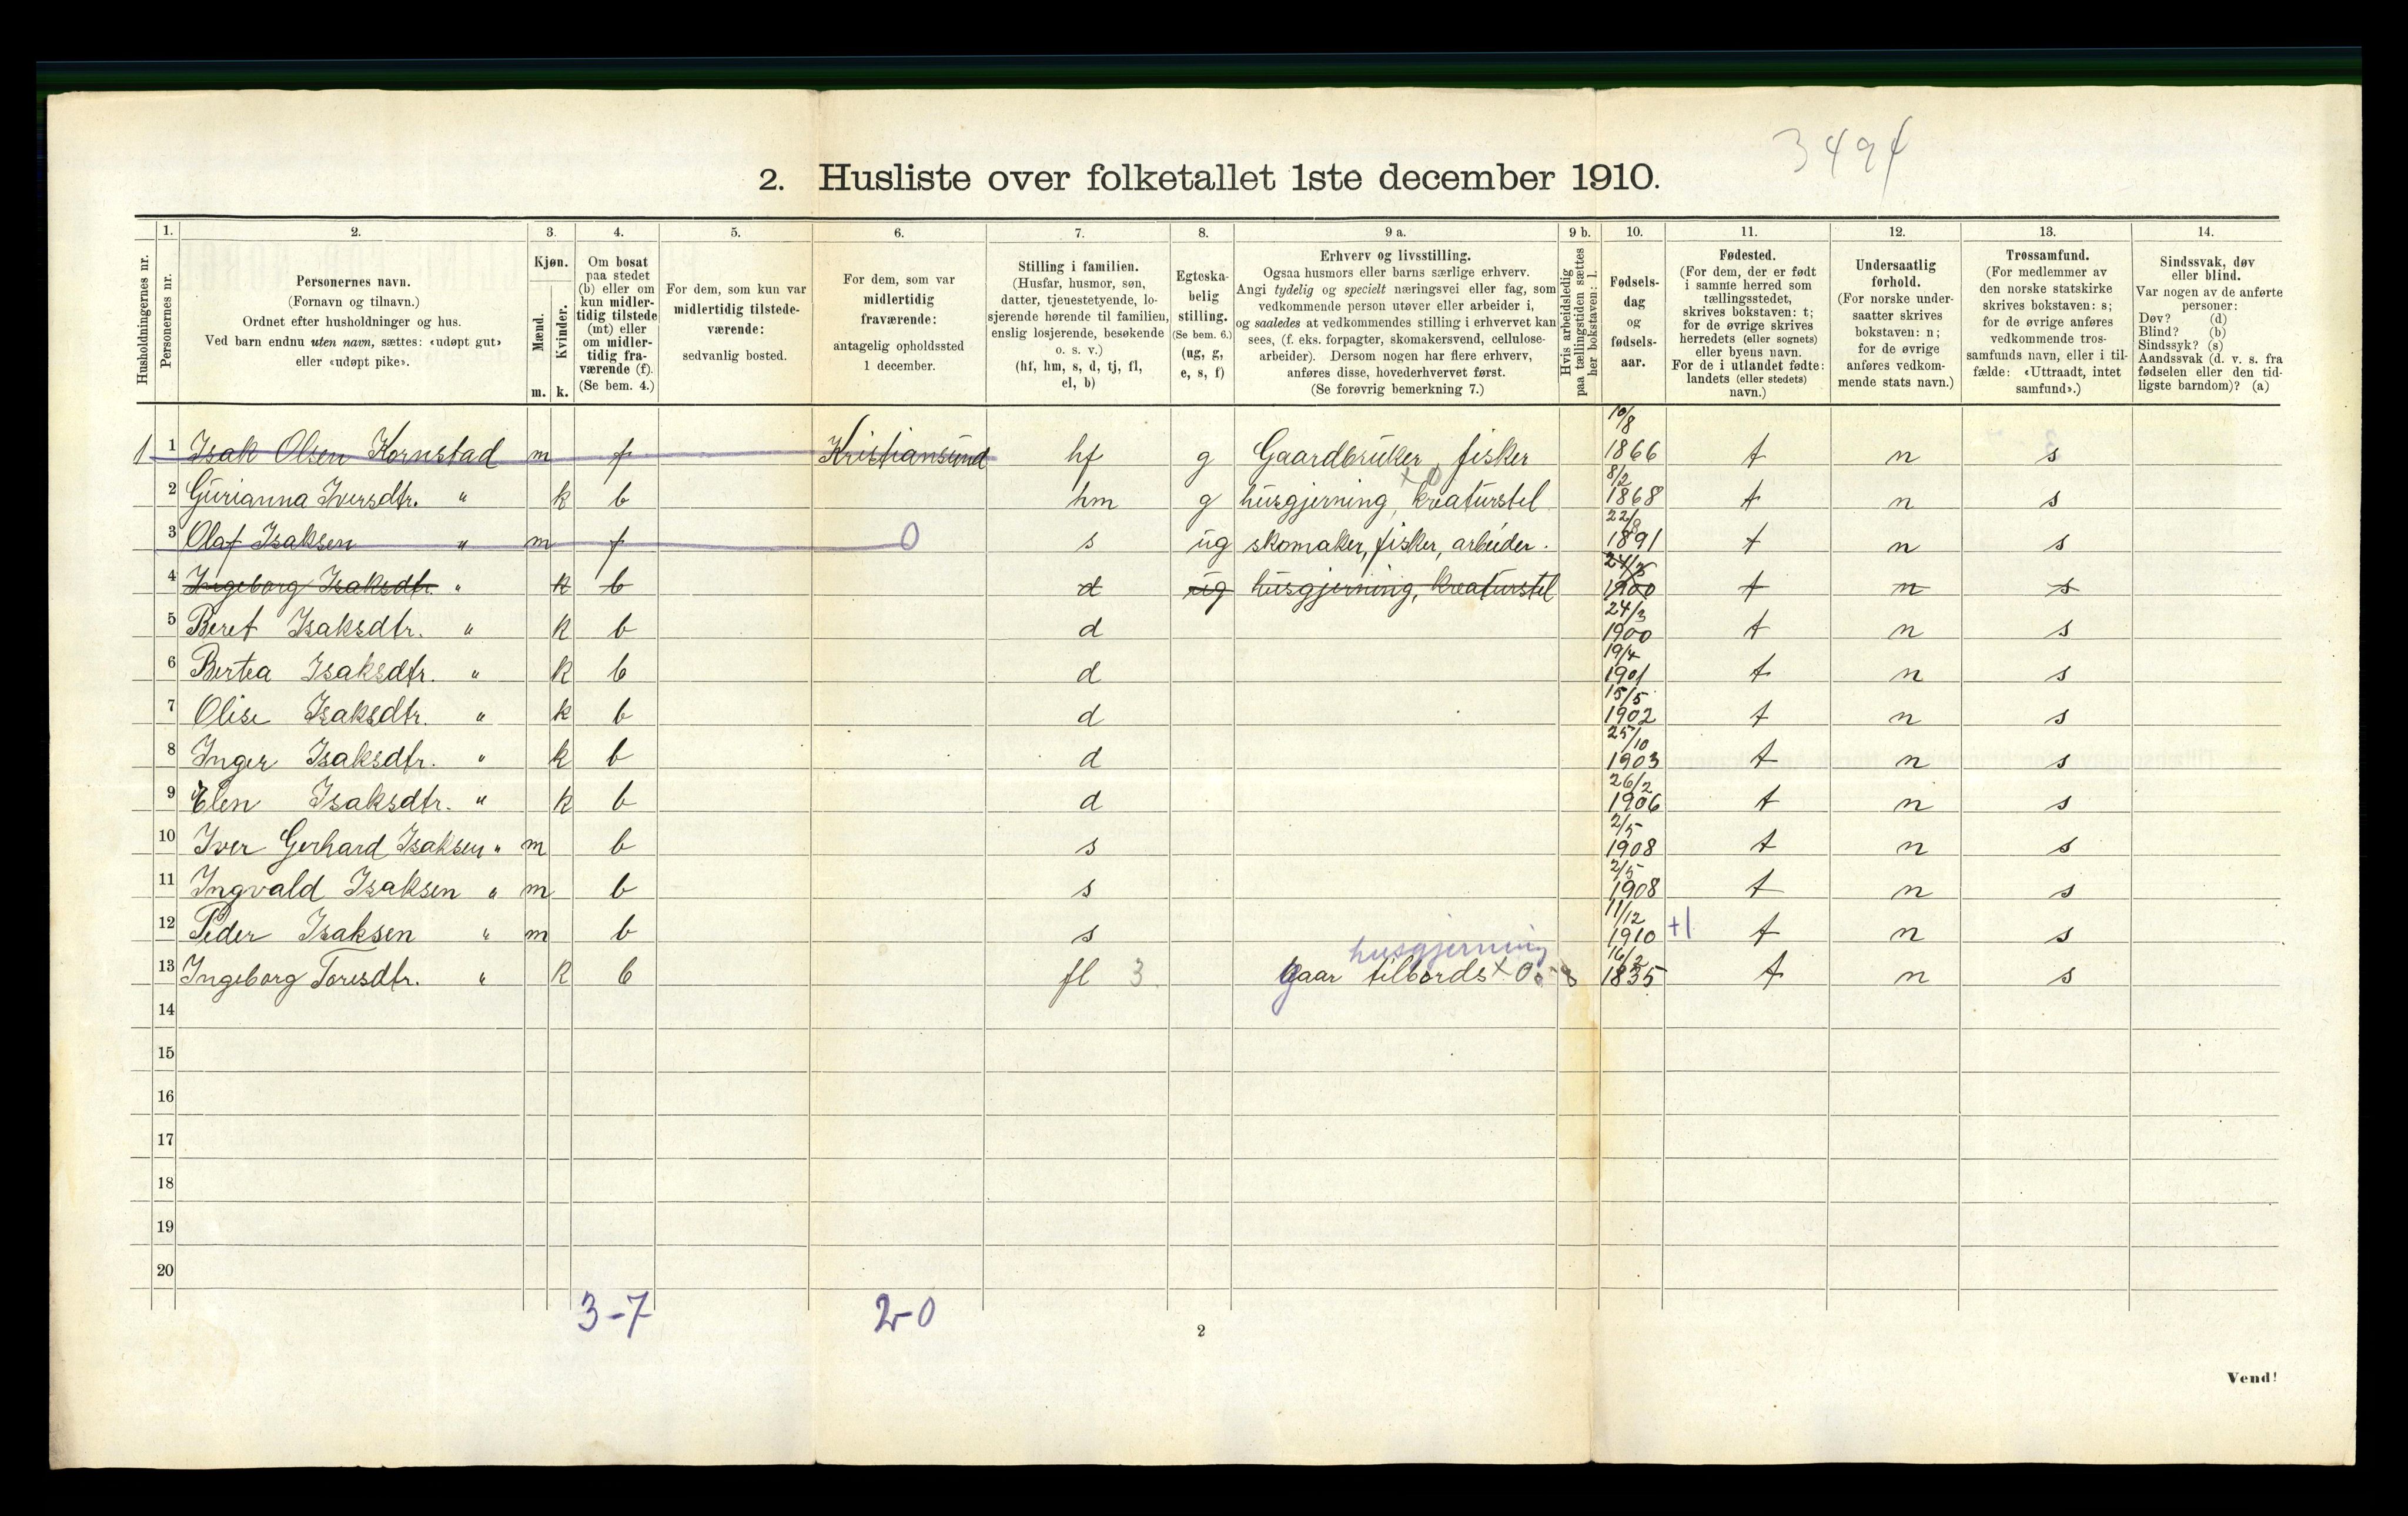 3494
2. Husliste over folketallet 1ste december 1910.
Husholdningernes nr.
1.
Personernes nr.
2.
Personernes navn.
(Fornavn og tilnavn.)
Ordnet efter husholdninger og hus.
Ved barn endnu uten navn, sættes: «udøpt gut»
eller «udøpt pike».
3.
Kjøn.
Mænd.
Kvinder.
m. k.
4.
Om bosat
paa stedet
(b) eller om
kun midler-
tidig tilstede
(mt) eller
om midler-
tidig fra-
værende (f).
(Se bem. 4.)
5.
For dem, som kun var
midlertidig tilstede-
værende:
sedvanlig bosted.
6.
For dem, som var
midlertidig
fraværende:
antagelig opholdssted
1 december.
7.
Stilling i familien.
(Husfar, husmor, søn,
datter, tjenestetyende, lo-
sjerende hørende til familien,
enslig losjerende, besøkende
o. s. v.)
(hf, hm, s, d, tj, fl,
el, b)
8.
Egteska-
belig
stilling.
(Se bem. 6.)
(ug, g,
e, s, f)
9 a.
Erhverv og livsstilling.
Ogsaa husmors eller barns særlige erhverv.
Angi tydelig og specielt næringsvei eller fag, som
vedkommende person utøver eller arbeider i,
og saaledes at vedkommendes stilling i erhvervet kan
sees, (f. eks. forpagter, skomakersvend, cellulose-
arbeider). Dersom nogen har flere erhverv,
anføres disse, hovederhvervet først.
(Se forøvrig bemerkning 7.)
9 b.
Hvis arbeidsledig
paa tællingstiden sættes
her bokstaven: l.
10.
Fødsels-
dag
og
fødsels-
aar.
11.
Fødested.
(For dem, der er født
i samme herred som
tællingsstedet,
skrives bokstaven: t;
for de øvrige skrives
herredets (eller sognets)
eller byens navn.
For de i utlandet fødte:
landets (eller stedets)
navn.)
12.
Undersaatlig
forhold.
(For norske under-
saatter skrives
bokstaven: n;
for de øvrige
anføres vedkom-
mende stats navn.)
13.
Trossamfund.
(For medlemmer av
den norske statskirke
skrives bokstaven: s;
for de øvrige anføres
vedkommende tros-
samfunds navn, eller i til-
fælde: «Uttraadt, intet
samfund».)
14.
Sindssvak, døv
eller blind.
Var nogen av de anførte
personer:
Døv? (d)
Blind? (b)
Sindssyk? (s)
Aandssvak (d. v. s. fra
fødselen eller den tid-
ligste barndom)? (a)
1 1 Isak Olsen Kornstad m f Kristiansund hf g Gaardbruker, fisker 10/8 1866 t n s
2 Gurianna Iversdtr. " k b hm g husgjerning, kreaturstel 8/2 1868 t n s
3 Olaf Isaksen " m f 0 s ug skomaker, fisker, arbeider. 22/8 1891 t n s
4 Ingeborg Isaksdtr. " k b d ug husgjerning, kreaturstel 24/3 1900 t n s
5 Beret Isaksdtr. " k b d 24/3 1900 t n s
6 Bertea Isaksdtr. " k b d 19/4 1901 t n s
7 Olise Isaksdtr. " k b d 15/5 1902 t n s
8 Inger Isaksdtr. " k b d 25/10 1903 t n s
9 Elen Isaksdtr. " k b d 26/2 1906 t n s
10 Iver Gerhard Isaksen " m b s 2/5 1908 t n s
11 Ingvald Isaksen " m b s 2/5 1908 t n s
12 Peder Isaksen " m b s 11/12 1910 +1 t n s
husgjerning
13 Ingeborg Toresdtr. " k b fl 3 gaar tilbords x 0 16/2 1835 t n s
14
15
16
17
18
19
20
3-7 2-0
2
Vend!